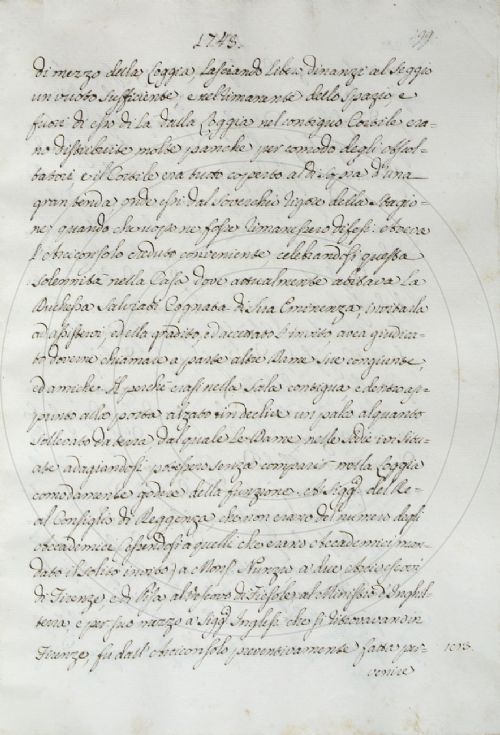 1748.
199.
di mezzo della Loggia, lasciando libero dinanzi al seggio
un vuoto sufficiente, e nel rimanente dello spazio, e
fuori di esso di là dalla Loggia nel contiguo Cortile era-
no distribuite molte panche per comodo degli Ascol-
tatori, e il Cortile era tutto coperto al di sopra d'una
gran tenda onde essi dal soverchio rigore della Stagio-
ne, quando che uopo ne fosse rimanessero difesi.
l'Arciconsolo caduto conveniente celebrandosi questa
solennità nella Casa dove attualmente abitava la
Duchessa Salviati Cognata di Sua Eminenza, invitarla
ad assistervi, ed ella gradito, ed accettato l'invito, avea giudica-
to dovere chiamare a parte altre Dame sue congiunte,
ed amiche. Il perchè erasi nella Sala contigua e dentro ap-
punto alla porta alzato in declive un palco alquanto
sollevato da terra, dal quale le Dame nelle sedie ivi situ-
ate adagiandosi potessero senza comparir nella Loggia
comodamente godere della funzione. A' Sigg.ri del Re-
al Consiglio di Reggenza, che non erano del numero degli
Accademici (essendosi a quelli che erano Accademici man-
dato il solito invito) a Mons.r Nunzio a due Arcivescovi
di Firenze, e di Pisa, al Vescovo di Fiesole, al Ministro d'Inghil-
terra e per suo mezzo a' Sigg.ri Inglesi, che si ritrovavan in
Firenze, fu dall'Arciconsolo preventivamente fatta per-
venire